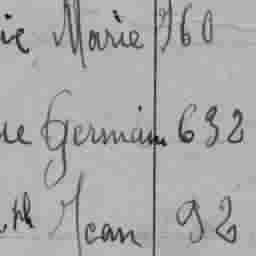 ie Marie 960
ue Germain 632
ph Jean 92